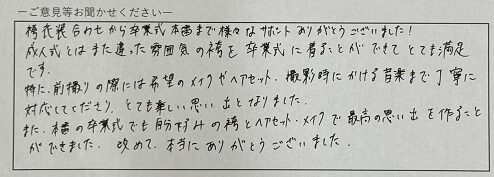 ―ご意見等お聞かせください―
袴衣裳合わせから卒業式本番まで様々なサポートありがとうございました!
成人式とはまた違った雰囲気の袴を卒業式に着ることができてとても満足
です。
特に、前撮りの際には希望のメイクやヘアセット、撮影時にかける音楽まで丁寧に
対応してくださり、とても楽しい思い出となりました。
また、本番の卒業式でも自分好みの袴とヘアセット・メイクで最高の思い出を作ること
ができました。改めて、本当にありがとうございました。